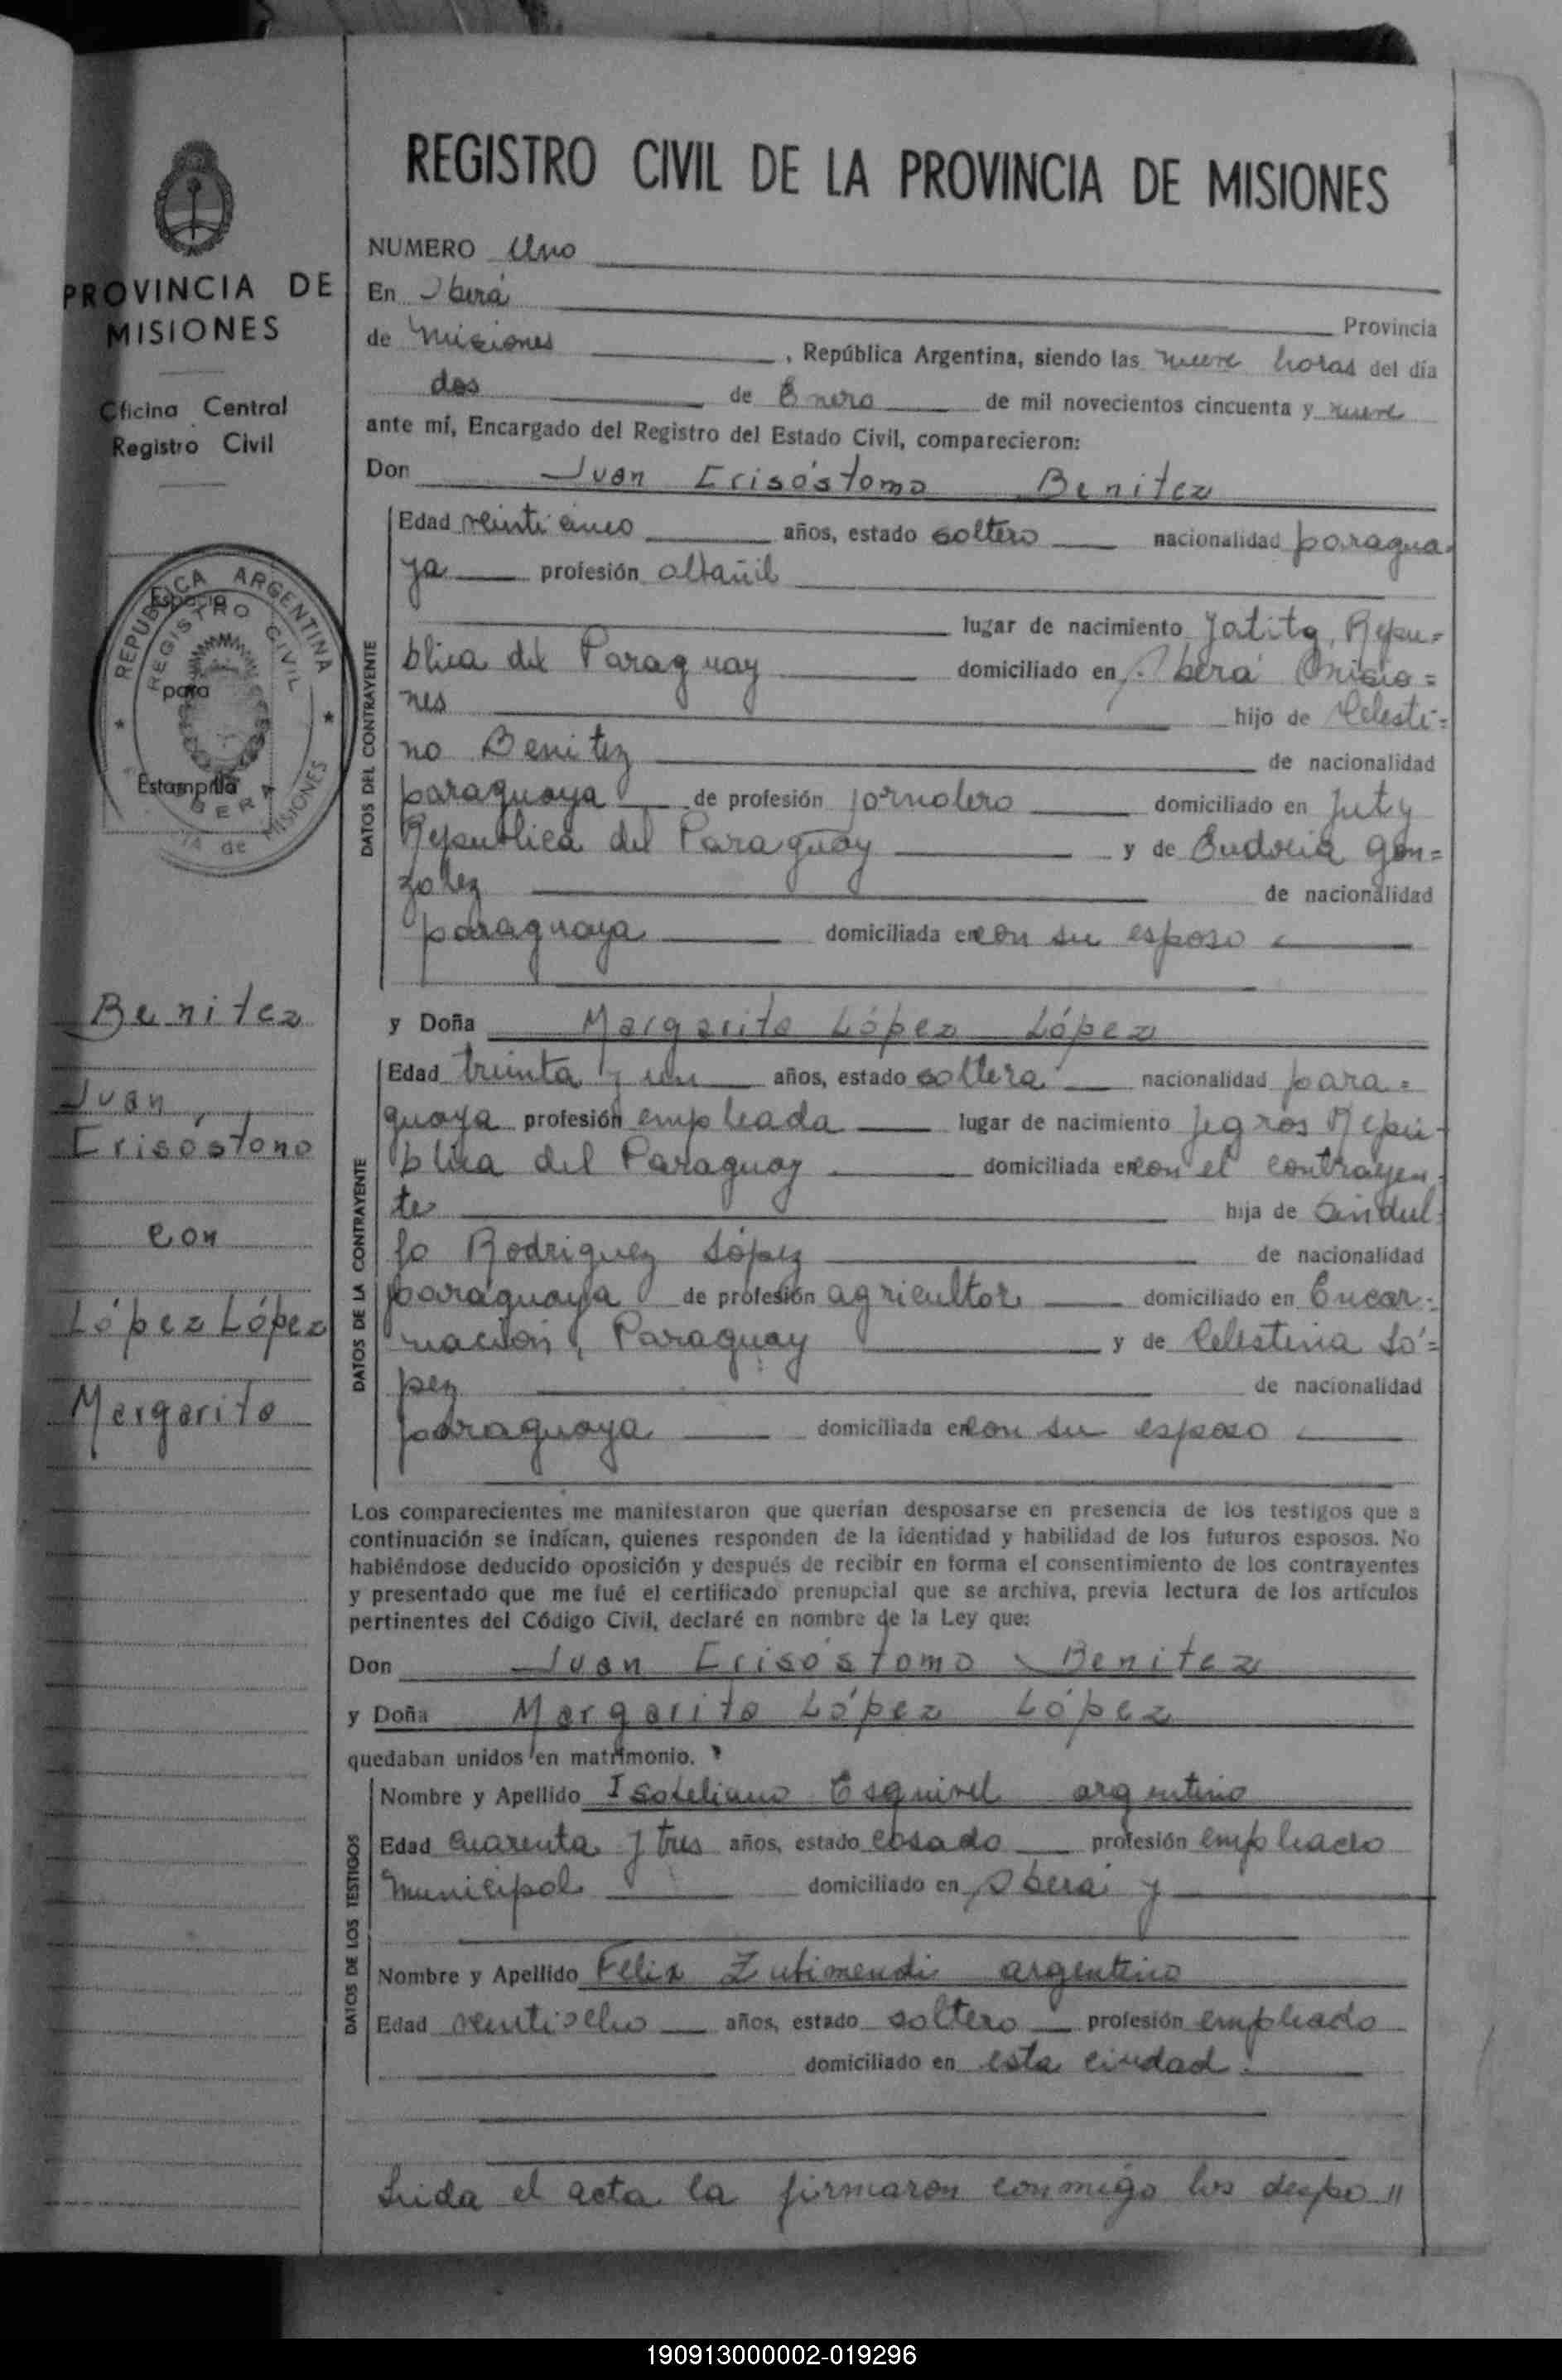 REGISTRO CIVIL DE LA PROVINCIA DE MISIONES
PROVINCIA DE
MISIONES
Oficina Central
Registro Civil
REPUBLICA ARGENTINA
REGISTRO CIVIL
Espacio
para
Estampilla
OBERA
MISIONES
Benitez
Juan
Crisóstomo
con
López López
Margarita
NUMERO Uno
En Oberá Provincia
de Misiones , República Argentina, siendo las nueve horas del día
dos de Enero de mil novecientos cincuenta y nueve
ante mí, Encargado del Registro del Estado Civil, comparecieron:
Don Juan Crisóstomo Benitez
DATOS DEL CONTRAYENTE
Edad veinticinco años, estado soltero nacionalidad paragua-
ya profesión albañil
lugar de nacimiento Yatity, Repu=
blica del Paraguay domiciliado en Oberá Misio=
nes hijo de Celesti=
no Benitez de nacionalidad
paraguaya de profesión jornalero domiciliado en Juty
Republica del Paraguay y de Eudocia Gon=
zalez de nacionalidad
paraguaya domiciliada en con su esposo
y Doña Margarita López López
DATOS DE LA CONTRAYENTE
Edad treinta y un años, estado soltera nacionalidad para=
guaya profesión empleada lugar de nacimiento Jegros Repú-
blica del Paraguay domiciliada en con el contrayen-
te hija de Sindul-
fo Rodriguez López de nacionalidad
paraguaya de profesión agricultor domiciliado en Encar-
nación, Paraguay y de Celestina Ló=
pez de nacionalidad
paraguaya domiciliada en con su esposo
Los comparecientes me manifestaron que querían desposarse en presencia de los testigos que a
continuación se indican, quienes responden de la identidad y habilidad de los futuros esposos. No
habiéndose deducido oposición y después de recibir en forma el consentimiento de los contrayentes
y presentado que me fué el certificado prenupcial que se archiva, previa lectura de los artículos
pertinentes del Código Civil, declaré en nombre de la Ley que:
Don Juan Crisóstomo Benitez
y Doña Margarita López López
quedaban unidos en matrimonio.
DATOS DE LOS TESTIGOS
Nombre y Apellido Isoteliano Esquivel argentino
Edad cuarenta y tres años, estado casado profesión empleado
municipal domiciliado en Oberá y
Nombre y Apellido Felix Zubimendi argentino
Edad veintiocho años, estado soltero profesión empleado
domiciliado en esta ciudad.
Leida el acta la firmaron conmigo los despo //
190913000002-019296